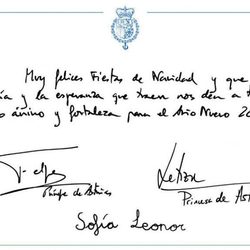 Muy felices Fiestas de Navidad y que
ía y la esperanza que traen nos den a t
o ánimo y fortaleza para el Año Nuevo 20
Felipe Letizia
Príncipe de Asturias Princesa de Ast
Sofía Leonor